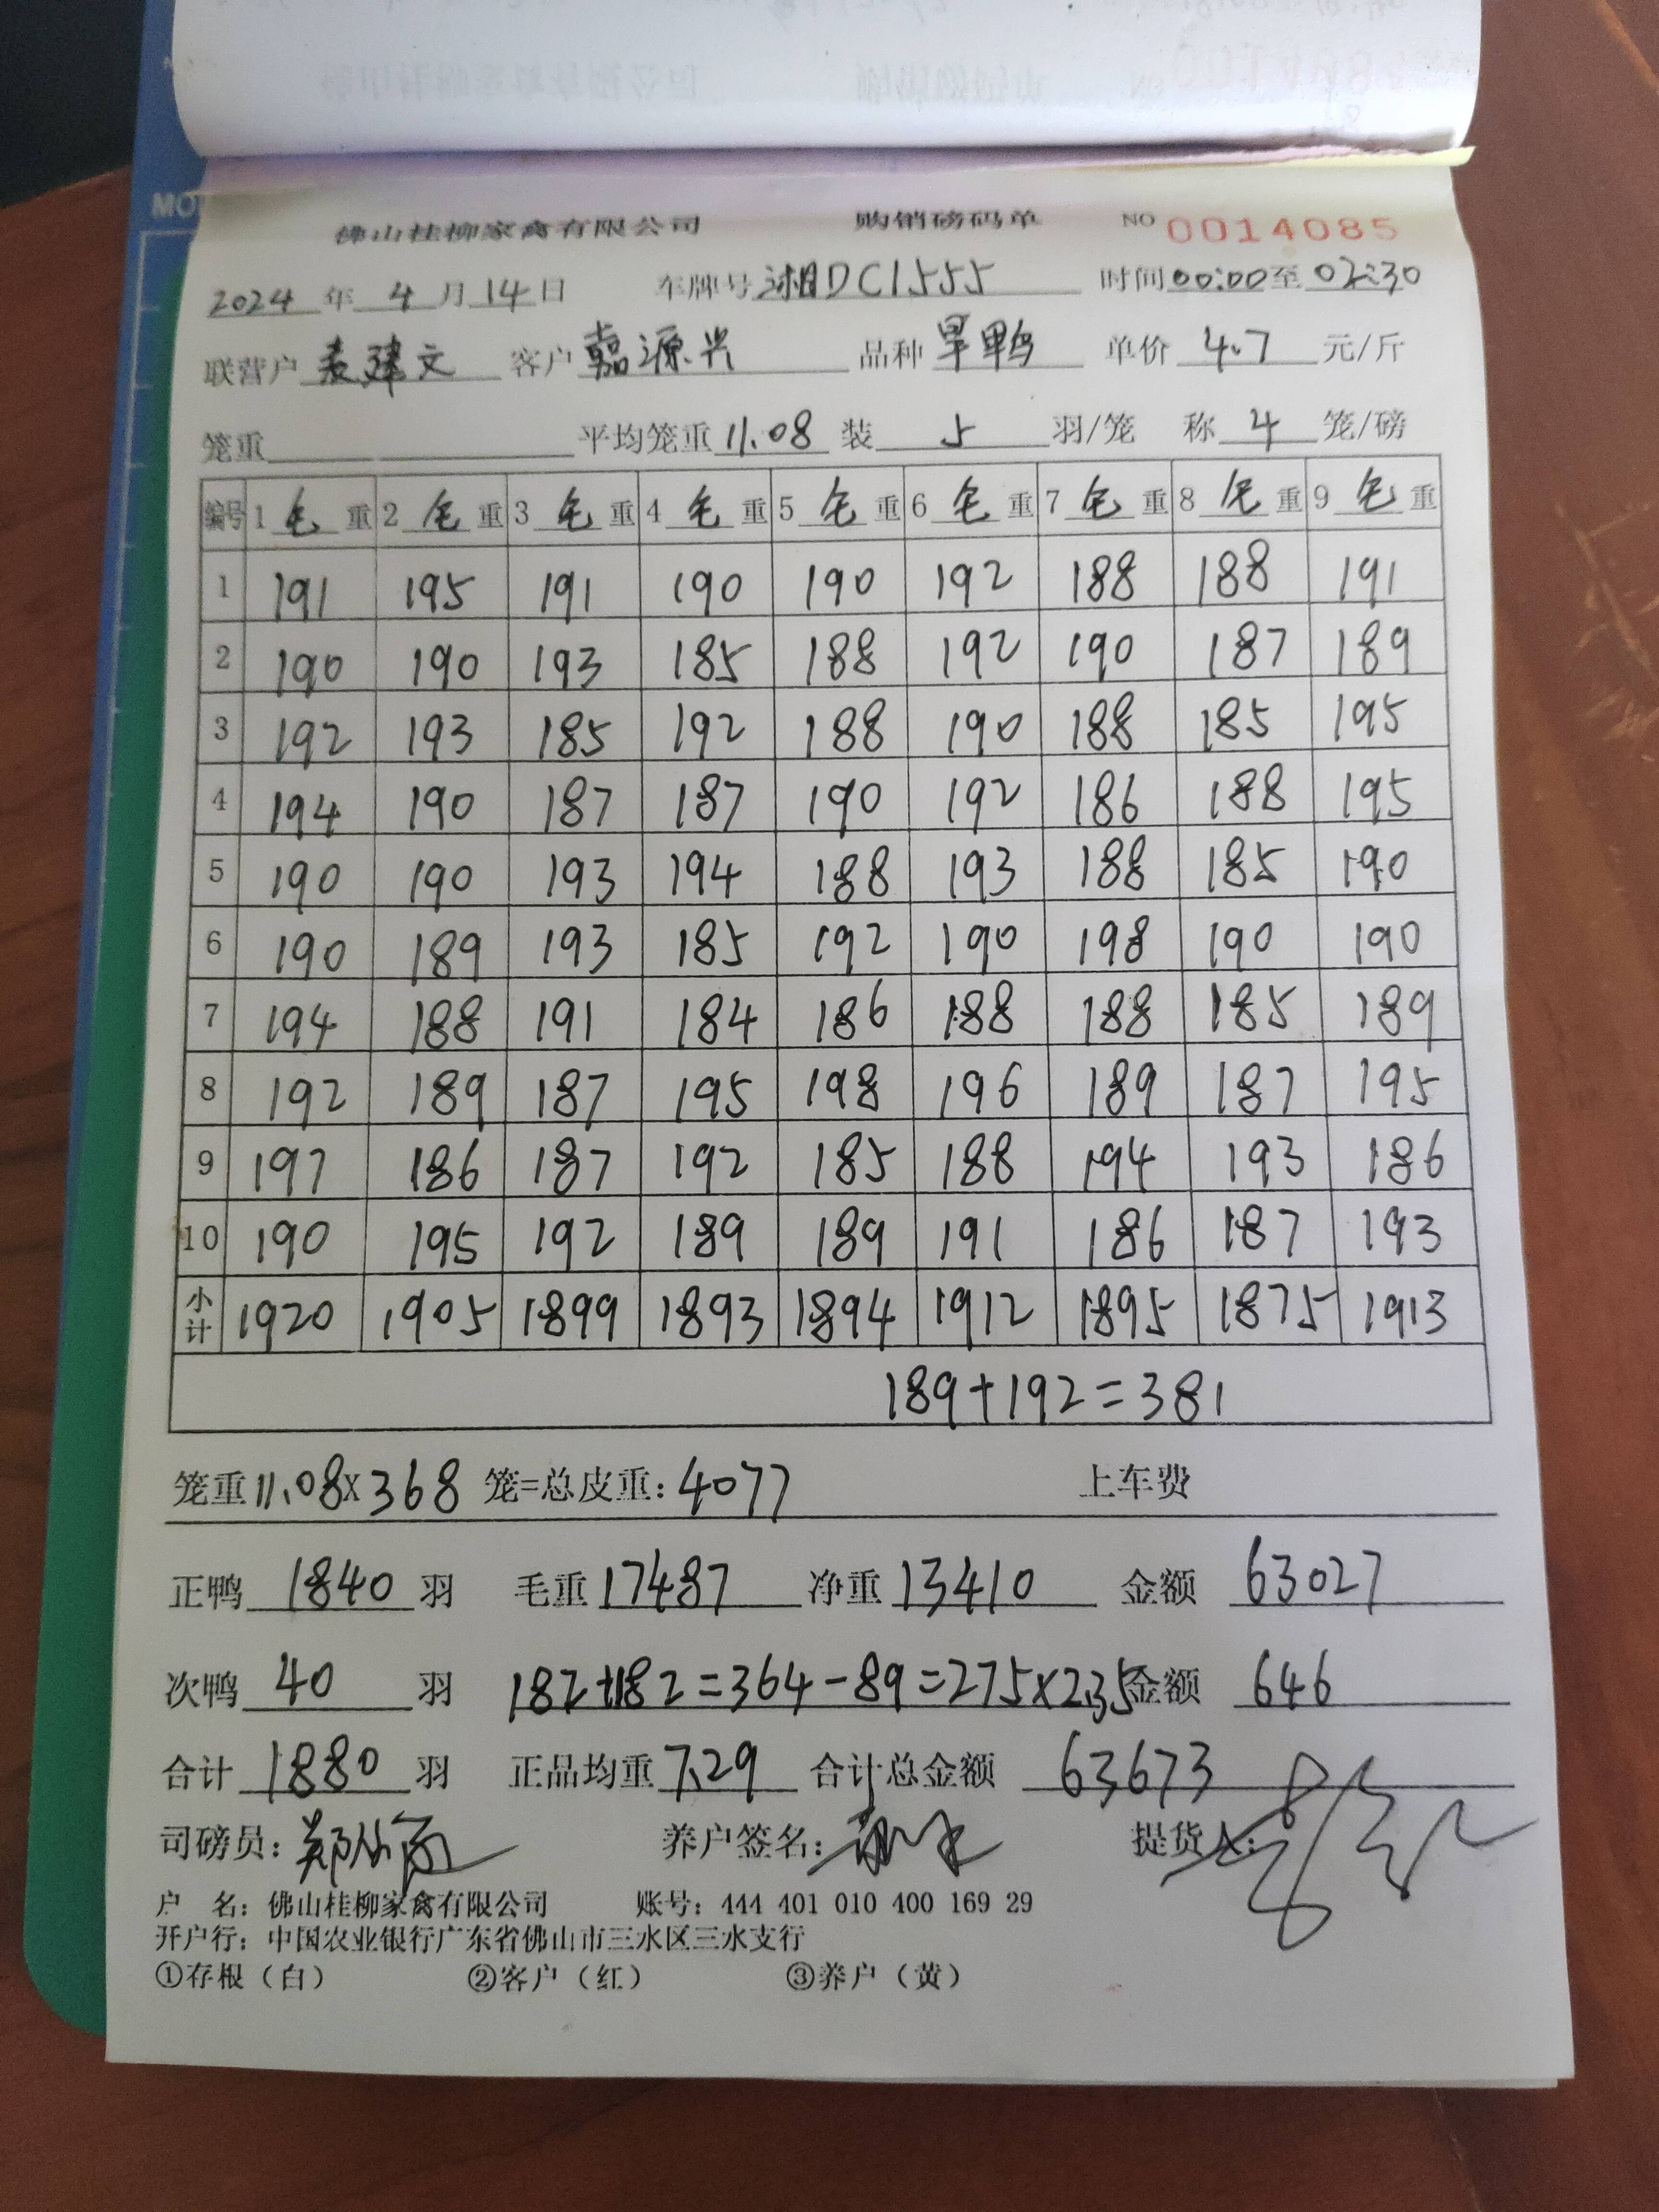 佛山桂柳家禽有限公司 购销磅码单 NO 0014085
2024 年 4 月 14 日 车牌号 湘DC1555 时间 00:00 至 02:30
联营户 麦建文 客户 嘉源兴 品种 旱鸭 单价 4.7 元/斤
笼重 平均笼重 11.08 装 5 羽/笼 称 4 笼/磅
编号 1 毛 重 2 毛 重 3 毛 重 4 毛 重 5 毛 重 6 毛 重 7 毛 重 8 毛 重 9 毛 重
1 191 195 191 190 190 192 188 188 191
2 190 190 193 185 188 192 190 187 189
3 192 193 185 192 188 190 188 185 195
4 194 190 187 187 190 192 186 188 195
5 190 190 193 194 188 193 188 185 190
6 190 189 193 185 192 190 198 190 190
7 194 188 191 184 186 188 188 185 189
8 192 189 187 195 198 196 189 187 195
9 197 186 187 192 185 188 194 193 186
10 190 195 192 189 189 191 186 187 193
小计 1920 1905 1899 1893 1894 1912 1895 1875 1913
189+192=381
笼重 11.08×368 笼=总皮重: 4077 上车费
正鸭 1840 羽 毛重 17487 净重 13410 金额 63027
次鸭 40 羽 182+182=364-89=275×2.35 金额 646
合计 1880 羽 正品均重 7.29 合计总金额 63673
司磅员: 养户签名: 提货人:
户 名: 佛山桂柳家禽有限公司 账号: 444 401 010 400 169 29
开户行: 中国农业银行广东省佛山市三水区三水支行
①存根(白) ②客户(红) ③养户(黄)